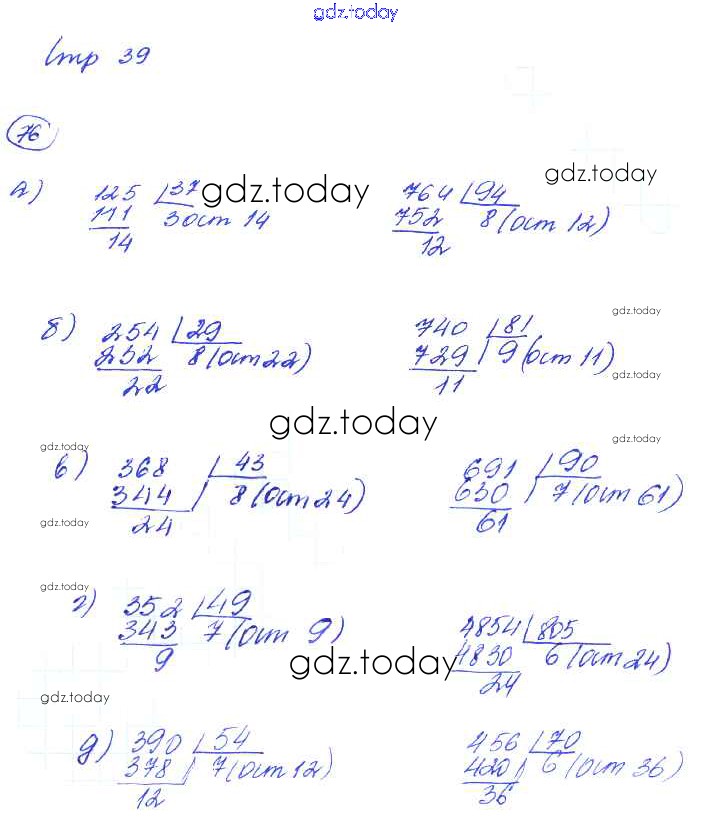 gdz.today
Стр 39
76
а) 125 37 gdz.today 764 94 gdz.today
111 3 ост 14 752 8 (ост 12)
14 12
gdz.today
б) 254 29 740 81
252 8 (ост 22) 729 9 (ост 11) gdz.today
22 11
gdz.today gdz.today
gdz.today
в) 368 43 691 90
344 8 (ост 24) 630 7 (ост 61)
gdz.today 24 61
gdz.today
г) 352 49 4854 805
343 7 (ост 9) 4830 6 (ост 24)
9 gdz.today 24
gdz.today
д) 390 54 456 70
378 7 (ост 12) 420 6 (ост 36)
12 36